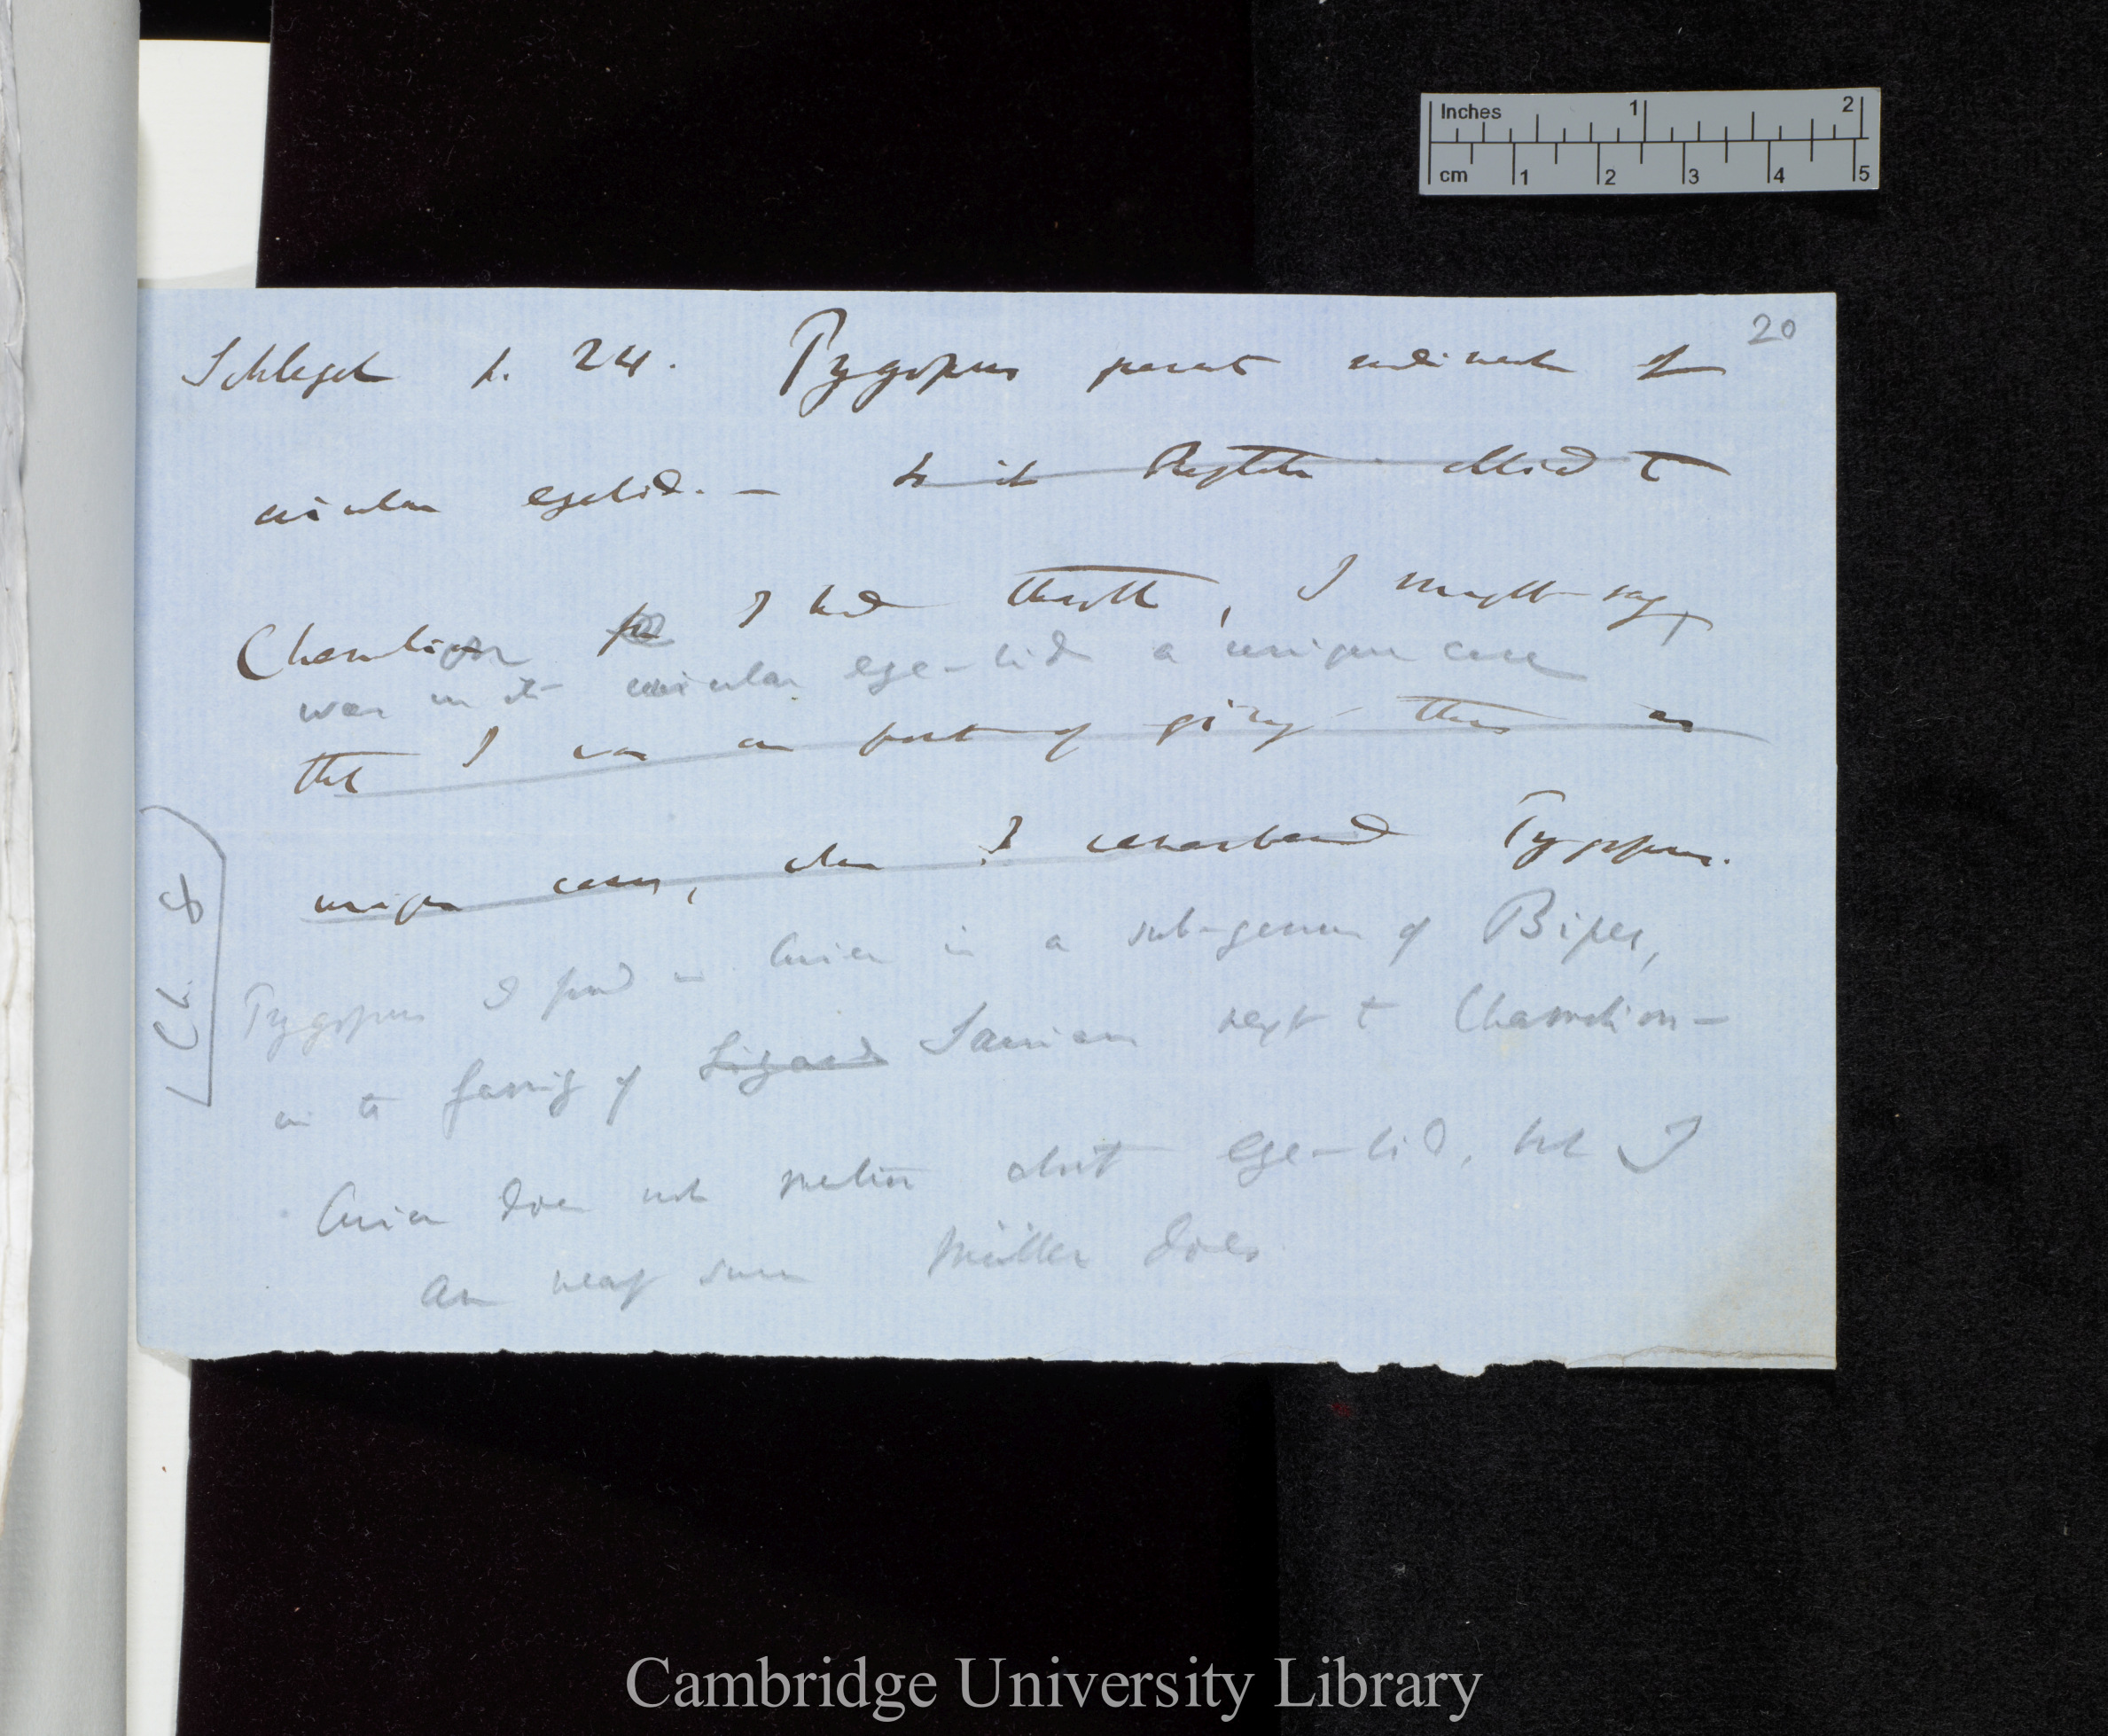 20
Schlegel p. 24. Pygopus presents rudiment of
circular eyelid. — Is it Reptile allied to
Chamelion I had thought, I might say,
was in its circular eye-lid a unique case
that I was on point of giving this as
unique cases, when I remembered Pygopus.
Pygopus I find in Cuvier is a sub-genus of Bipes,
in the family of Lizard Saurian next to Chamelion —
Cuvier does not mention about eye-lid, but I
am nearly sure Müller does
Ch. 8
Inches 1 2
cm 1 2 3 4 5
Cambridge University Library